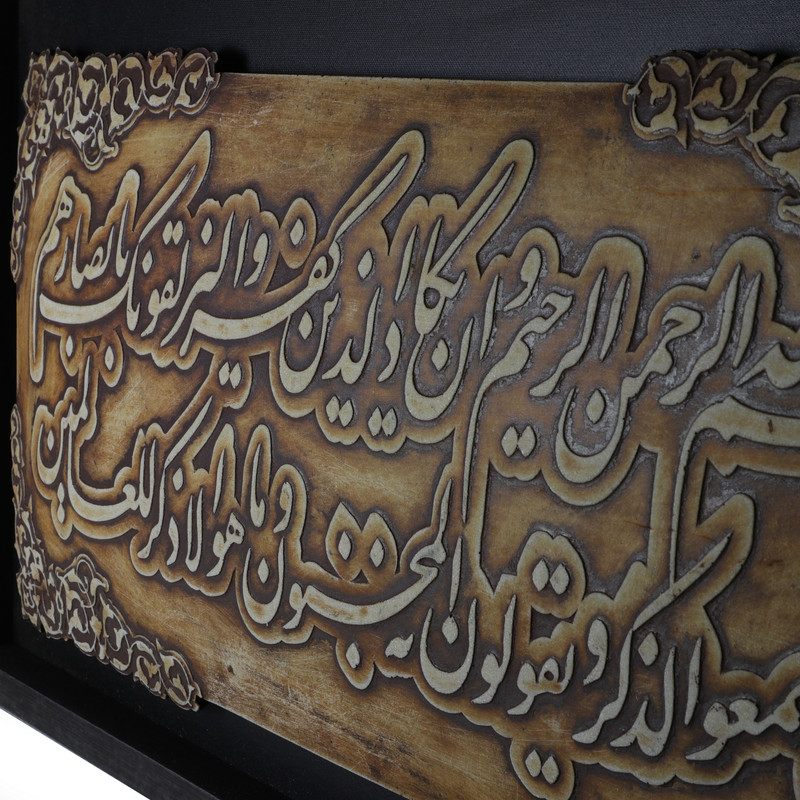 الرحمن الرحیم و ان یکاد الذین کفروا لیزلقونک بابصارهم
سمعوا الذکر و یقولون انه لمجنون و ما هو الا ذکر للعالمین